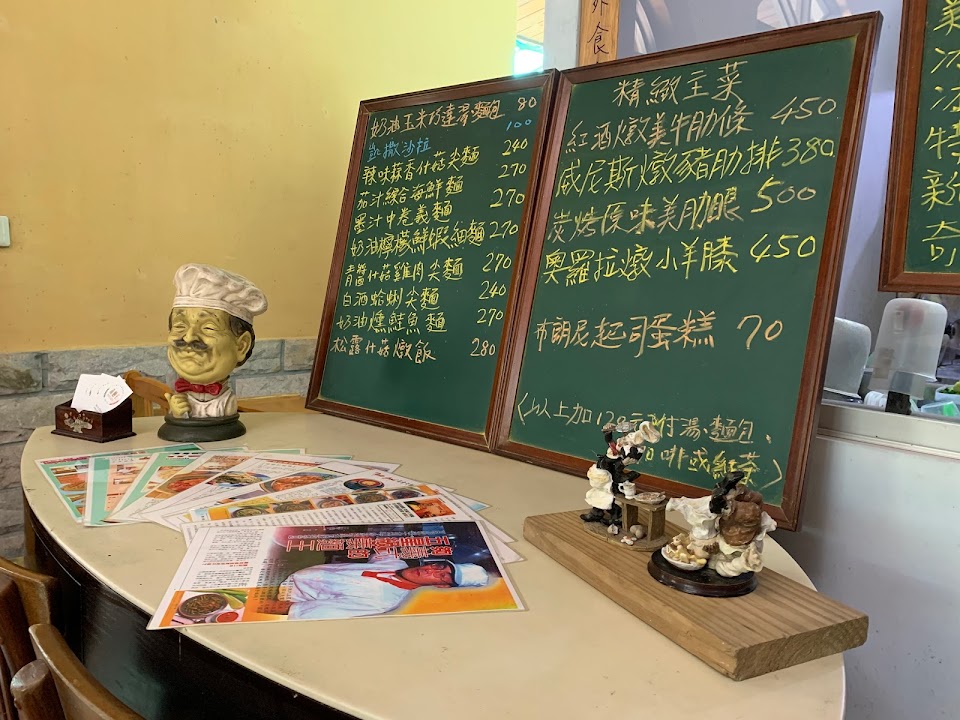 外食
奶油玉米巧達湯.麵包 80
凱撒沙拉 100
辣味蒜香什菇尖麵 240
茄汁綜合海鮮麵 270
墨汁中卷義麵 270
奶油檸檬鮮蝦細麵 270
青醬什菇雞肉尖麵 270
白酒蛤蜊尖麵 240
奶油燻鮭魚麵 270
松露什菇燉飯 280
精緻主菜
紅酒燉美牛肋條 450
威尼斯燉豬肋排 380
炭烤原味美肋眼 500
奧羅拉燉小羊膝 450
布朗尼起司蛋糕 70
(以上加120元附湯.麵包、
咖啡或紅茶)